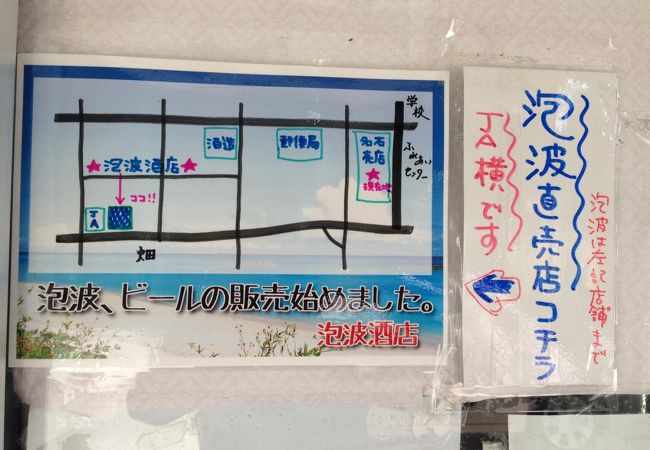 学校
酒造
郵便局
名石
売店
★現在地
ふれあい
センター
★泡波酒店★
ココ!!
JA
畑
泡波、ビールの販売始めました。
泡波酒店
泡波は左記店舗まで
泡波直売店コチラ
JA横です